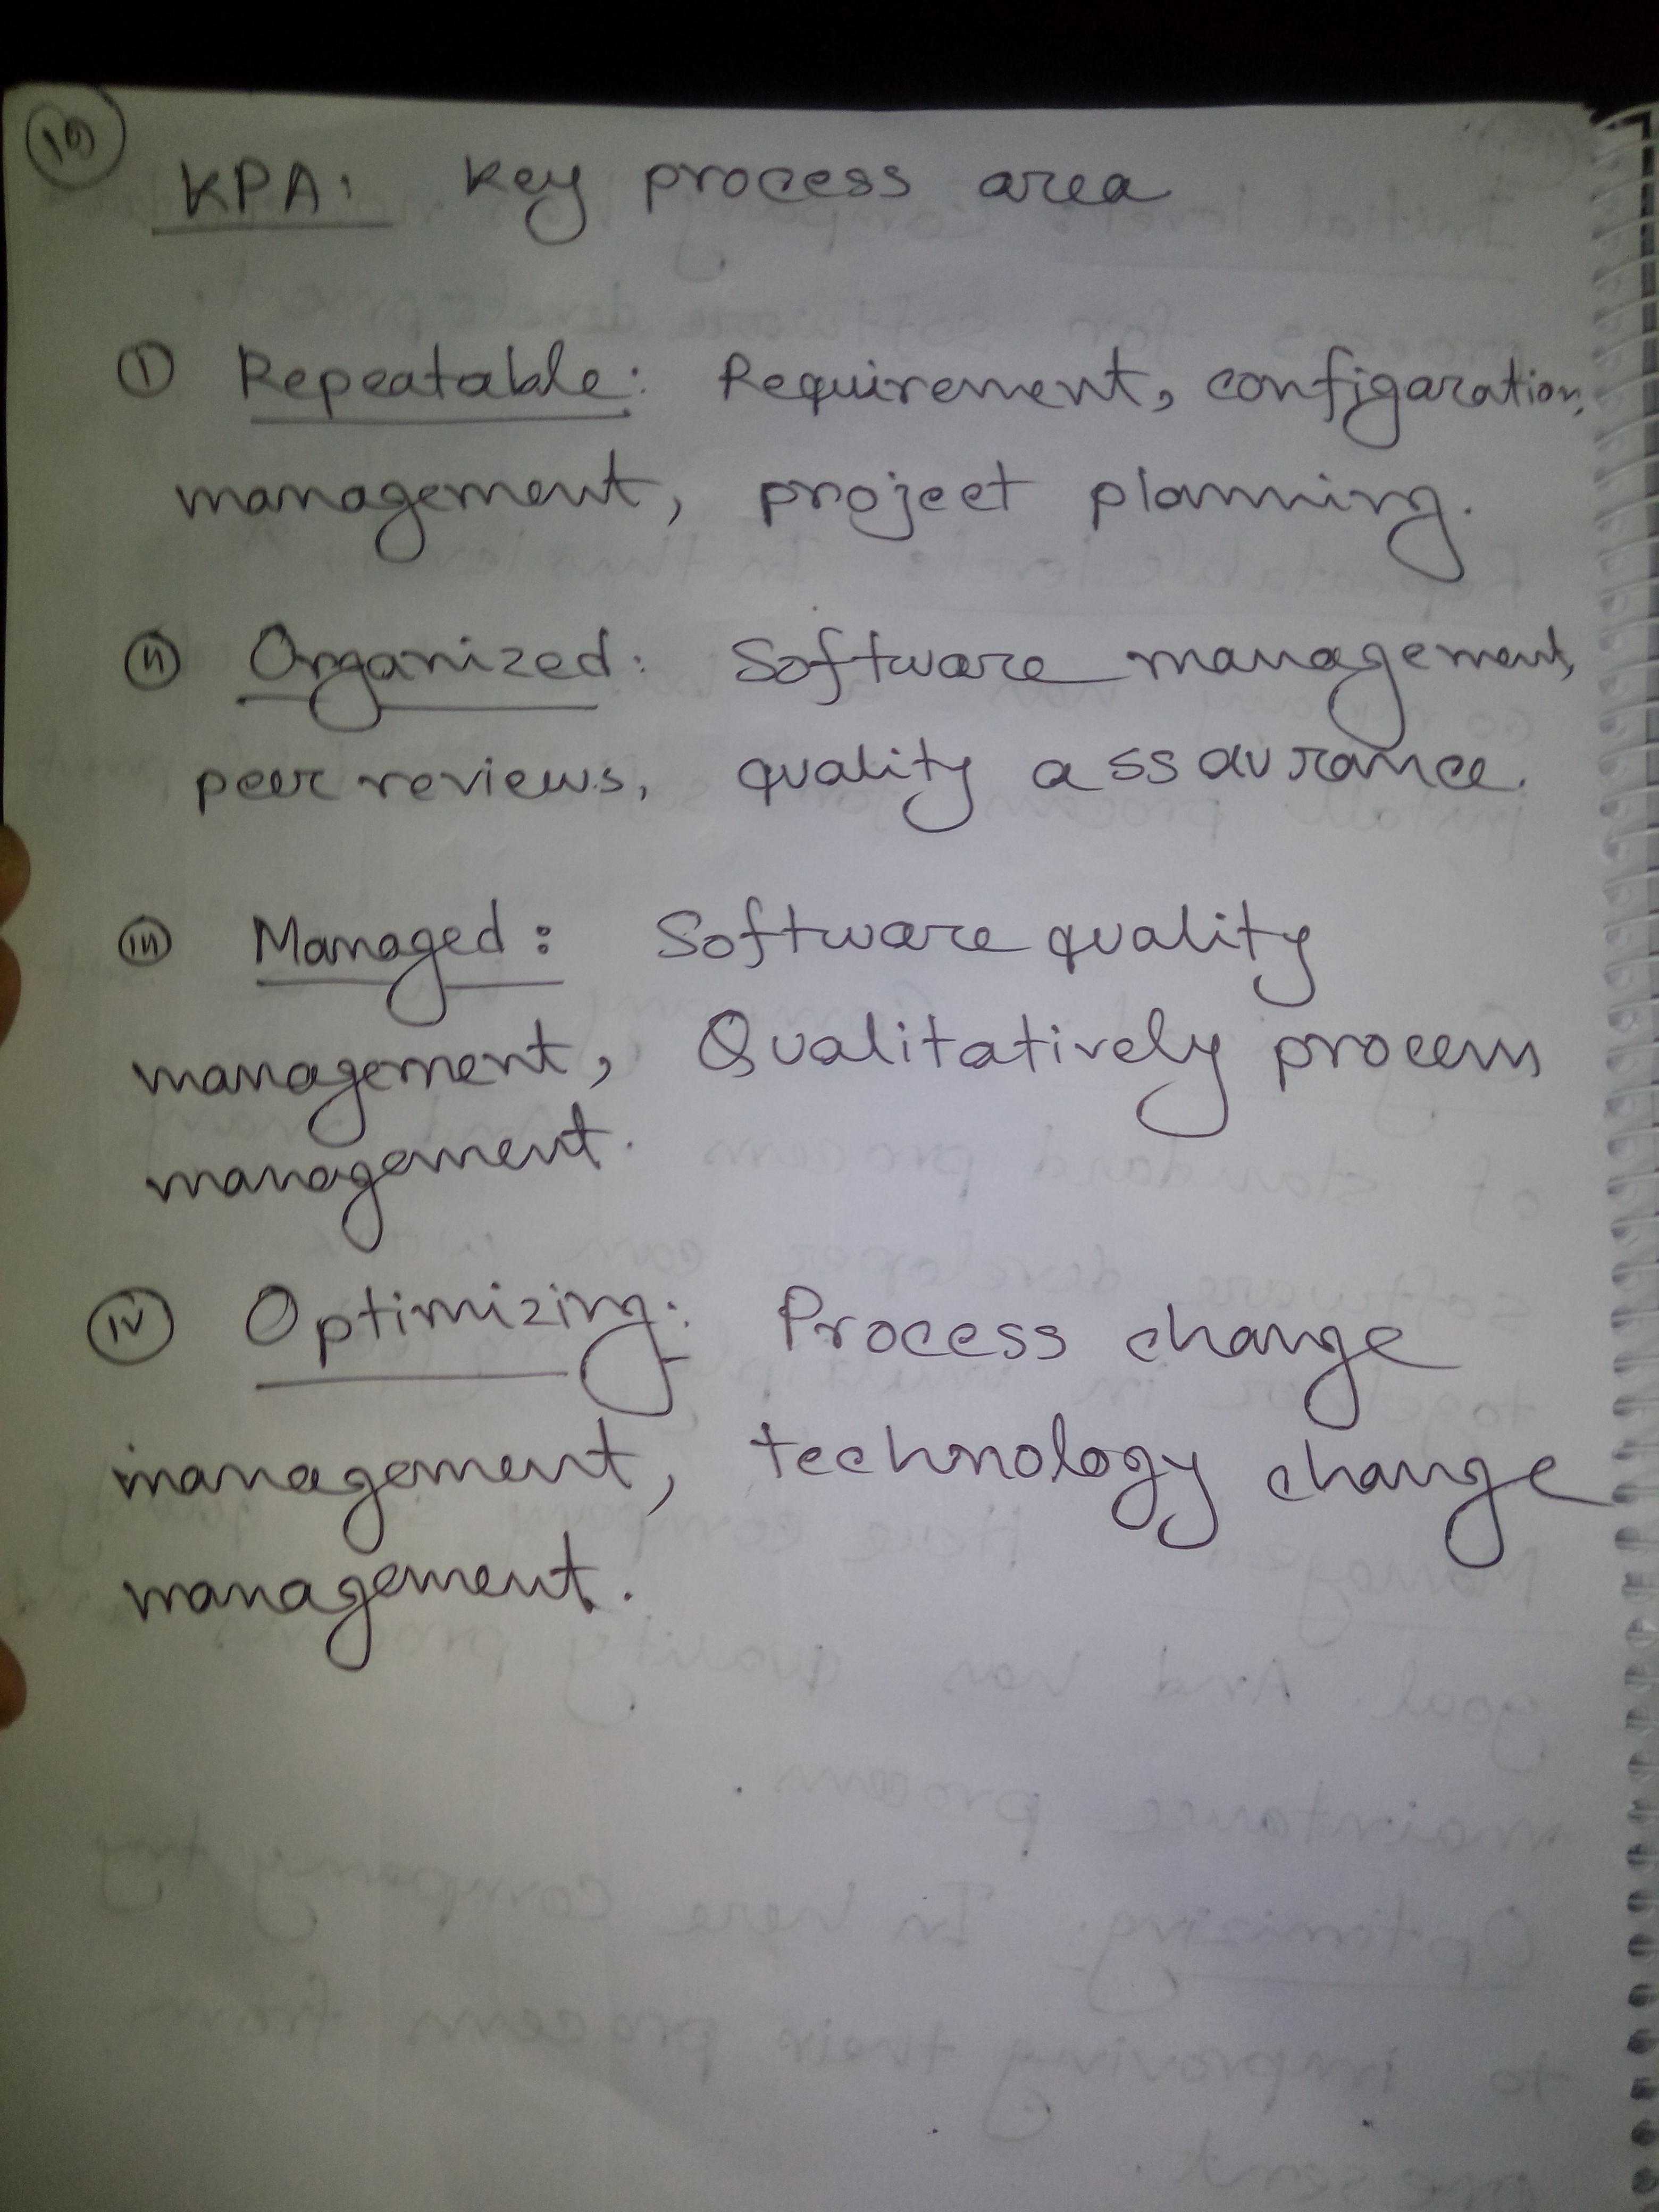 KPA: Key process area
i Repeatable: Requirement, configaration,
management, project planning.
ii Organized: Software management,
peer reviews, quality assaurance.
iii Managed: Software quality
management, Qualitatively process
management.
iv Optimizing: Process change
management, technology change
management.